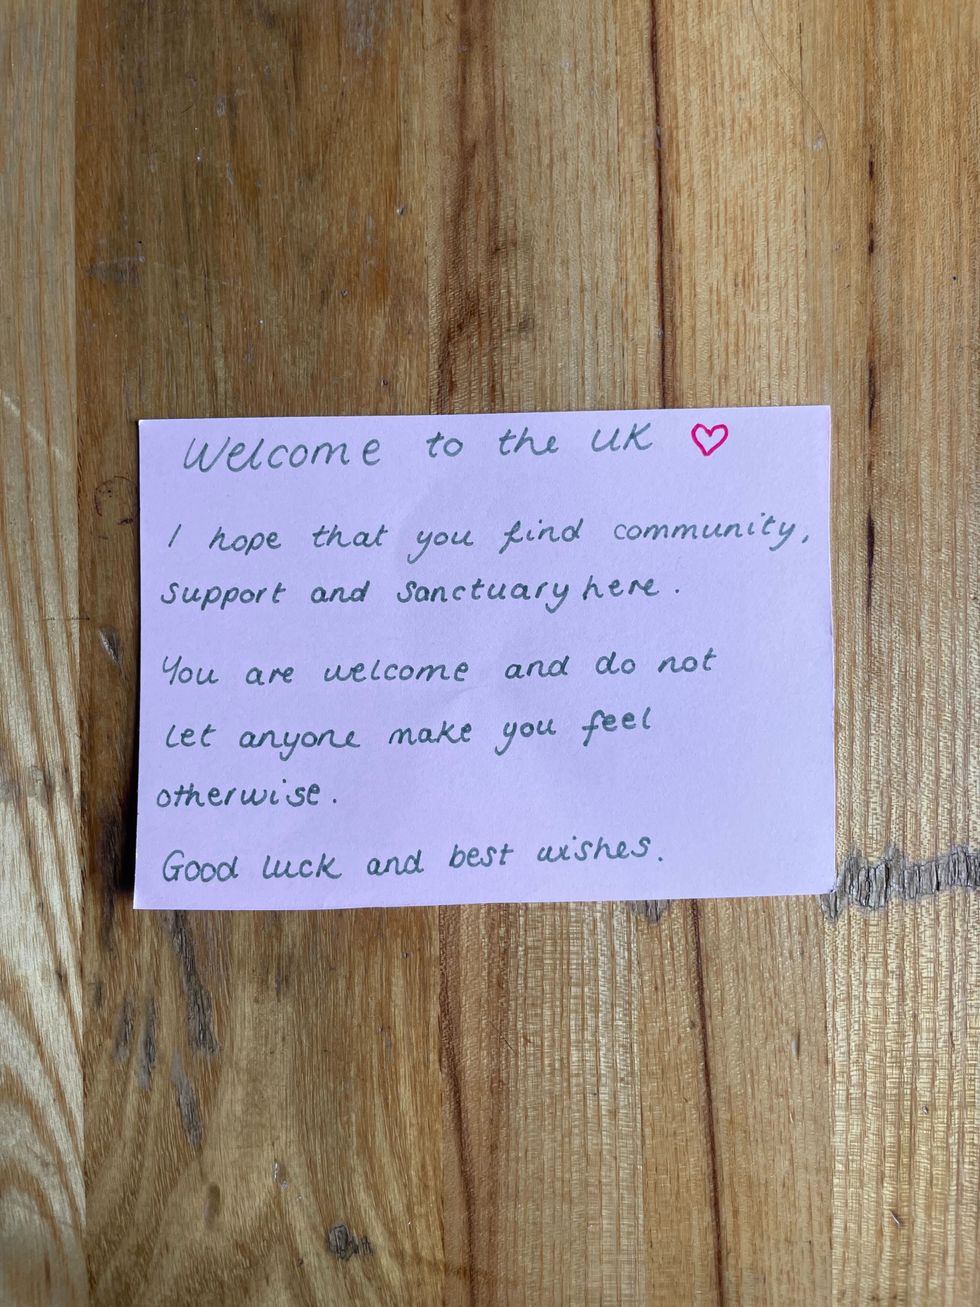 Welcome to the UK ♡
I hope that you find community,
support and sanctuary here.
You are welcome and do not
let anyone make you feel
otherwise.
Good luck and best wishes.